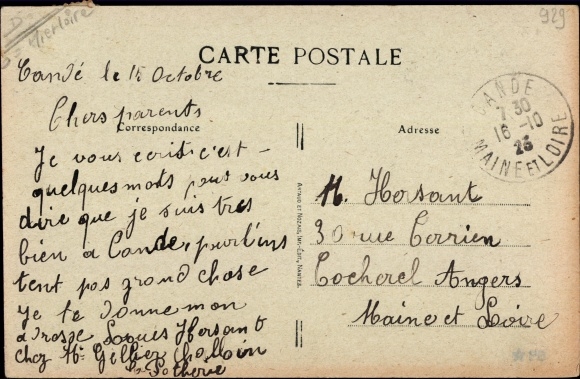 929
CARTE POSTALE
Candé le 15 Octobre
Chers parents
Correspondance
Je vous ecrit c'est
quelques mots pour vous
dire que je suis tres
bien a Candé, pour l'ins
tent pas grand chose
Je te donne mon
adrasse Louis Horsant
chez Mr
La Potherie
Adresse
CANDE
7 30
16 -10
25
MAINE ET LOIRE
M. Horsant
30 rue Corrien
Cocherel Angers
Maine et Loire
ARTAUD ET NOZAIS, IMP.-EDIT., NANTES